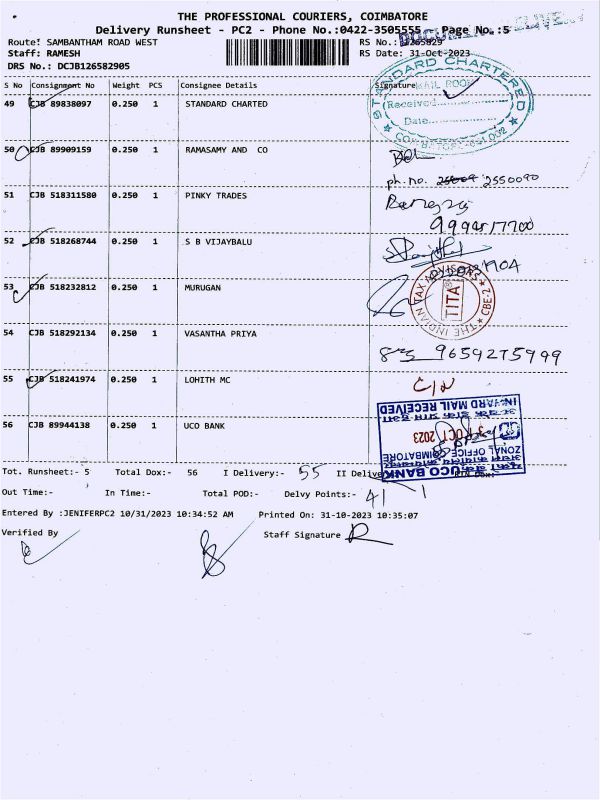 THE PROFESSIONAL COURIERS, COIMBATORE
Delivery Runsheet - PC2 - Phone No.:0422-3505555 Page No.:5
Route: SAMBANTHAM ROAD WEST
RS No.:
Staff: RAMESH
RS Date: 31-Oct-2023
DRS No.: DCJB126582905
S No Consignment No Weight PCS Consignee Details Signature
STANDARD CHARTERED
MAIL ROOM
Received
Date
COIMBATORE-641 002
49 CJB 89838097 0.250 1 STANDARD CHARTED
50 CJB 89909159 0.250 1 RAMASAMY AND CO
ph. no. 2550090
51 CJB 518311580 0.250 1 PINKY TRADES
52 CJB 518268744 0.250 1 S B VIJAYBALU
53 CJB 518232812 0.250 1 MURUGAN
THE INDIAN TAX ADVISORS
TITA
CBE-2
54 CJB 518292134 0.250 1 VASANTHA PRIYA
9659275999
55 CJB 518241974 0.250 1 LOHITH MC
56 CJB 89944138 0.250 1 UCO BANK
INWARD MAIL RECEIVED
31 OCT 2023
ZONAL OFFICE, COIMBATORE
UCO BANK
Tot. Runsheet:- 5 Total Dox:- 56 I Delivery:- 55 II Delivery
Out Time:- In Time:- Total POD:- Delvy Points:- 41
Entered By :JENIFERPC2 10/31/2023 10:34:52 AM Printed On: 31-10-2023 10:35:07
Verified By Staff Signature